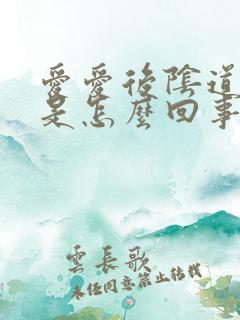 愛愛後陰道
是怎麼回事
雲長歌
未任同意禁止转载